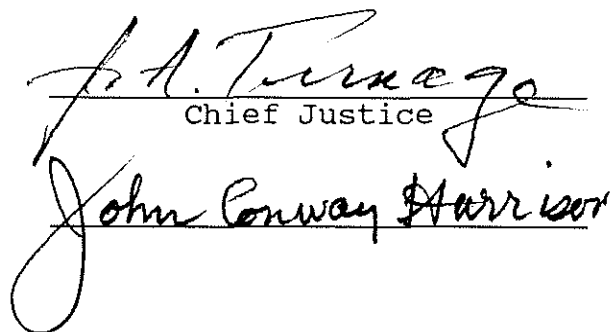 J. A. Turnage
Chief Justice
John Conway Harrison